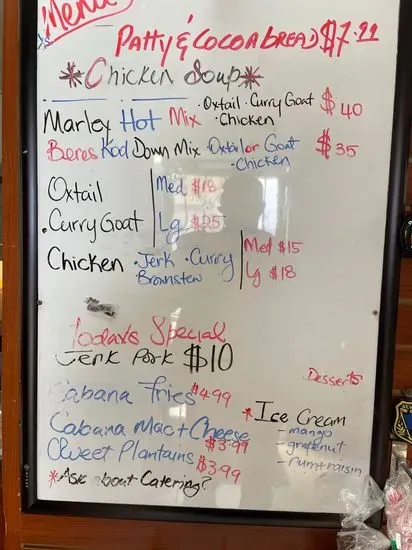 Menu
Patty & Cocoabread $7.99
*Chicken Soup*
Marley Hot Mix · Oxtail · Curry Goat · Chicken $40
Beres Kod Down Mix · Oxtail or Goat · Chicken $35
Oxtail Med $18
.Curry Goat Lg $25
Chicken · Jerk · Curry Med $15
Brownstew Lg $18
Today's Special
Jerk Pork $10
Cabana Fries $4.99
Cabana Mac + Cheese $3.99
Sweet Plantains $3.99
*Ask about Catering?
Desserts
*Ice Cream
- mango
- grapenut
- rum+raisin